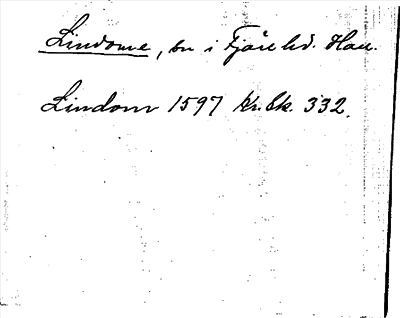 Lindome, sn i Fjäre hd. Hall.
Lindom 1597 kr.bk. 332.